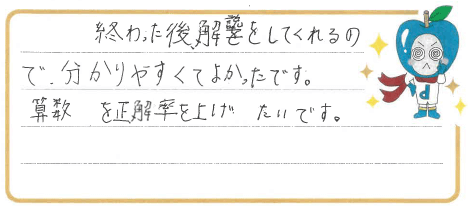 終わった後、解説をしてくれるの
で、分かりやすくてよかったです。
算数 を正解率を上げ たいです。
d